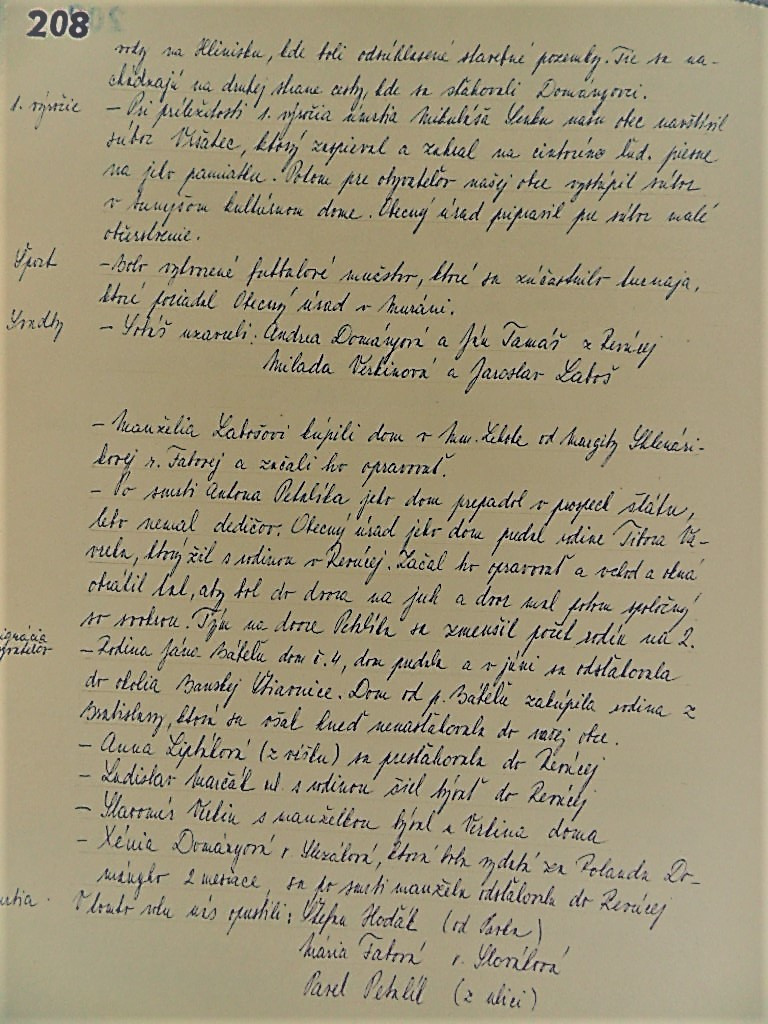 208
vody na Hlinisku, kde boli odsúhlasené stavebné pozemky. Tie sa na-
chádzajú na druhej strane cesty, kde sa sťahovali Dományovci.
1. výročie – Pri príležitosti 1. výročia úmrtia Mikuláša Senku našu obec navštívil
súbor Vršatec, ktorý zaspieval a zahral na cintoríne ľud. piesne
na jeho pamiatku. Potom pre obyvateľov našej obce vystúpil súbor
v tunajšom kultúrnom dome. Obecný úrad pripravil pre súbor malé
občerstvenie.
Šport – Bolo vytvorené futbalové mužstvo, ktoré sa zúčastnilo turnaja,
ktoré poriadal Obecný úrad v Muráni.
Svadby – Sobáš uzavreli: Andrea Dományová a Ján Tamáš z Revúcej
Milada Verbinová a Jaroslav Laboš
– Manželia Labošoví kúpili dom v Mur. Lehote od Margity Sklenári-
kovej r. Fabovej a začali ho opravovať.
– Po smrti Antona Petrlíka jeho dom prepadol v prospech štátu,
lebo nemal dedičov. Obecný úrad jeho dom predal rodine Tibora Va-
vreka, ktorý žil s rodinou v Revúcej. Začal ho opravovať a vchod a okná
obrátil tak, aby bol do dvora na juh a dvor mal potom spoločný
so svokrou. Tým na dvore Petrlíka sa zmenšil počet rodín na 2.
– Rodina Jána Bátelu dom č. 4, dom predala a v júni sa odsťahovala
do okolia Banskej Štiavnice. Dom od p. Bátelu zakúpila rodina z
Bratislavy, ktorá sa však hneď nenasťahovala do našej obce.
– Anna Liptáková (z víšku) sa presťahovala do Revúcej
– Ladislav Marčák ml. s rodinou išiel bývať do Revúcej
– Slavomír Verbin s manželkou býval u Verbina doma
– Xénia Dományová r. Slezálová, ktorá bola vydatá za Rolanda Do-
mányho 2 mesiace, sa po smrti manžela odsťahovala do Revúcej
V tomto roku nás opustili: Štefan Hodák (od Pavla)
Mária Fabová r. Slováková
Pavel Petrlík (z ulici)